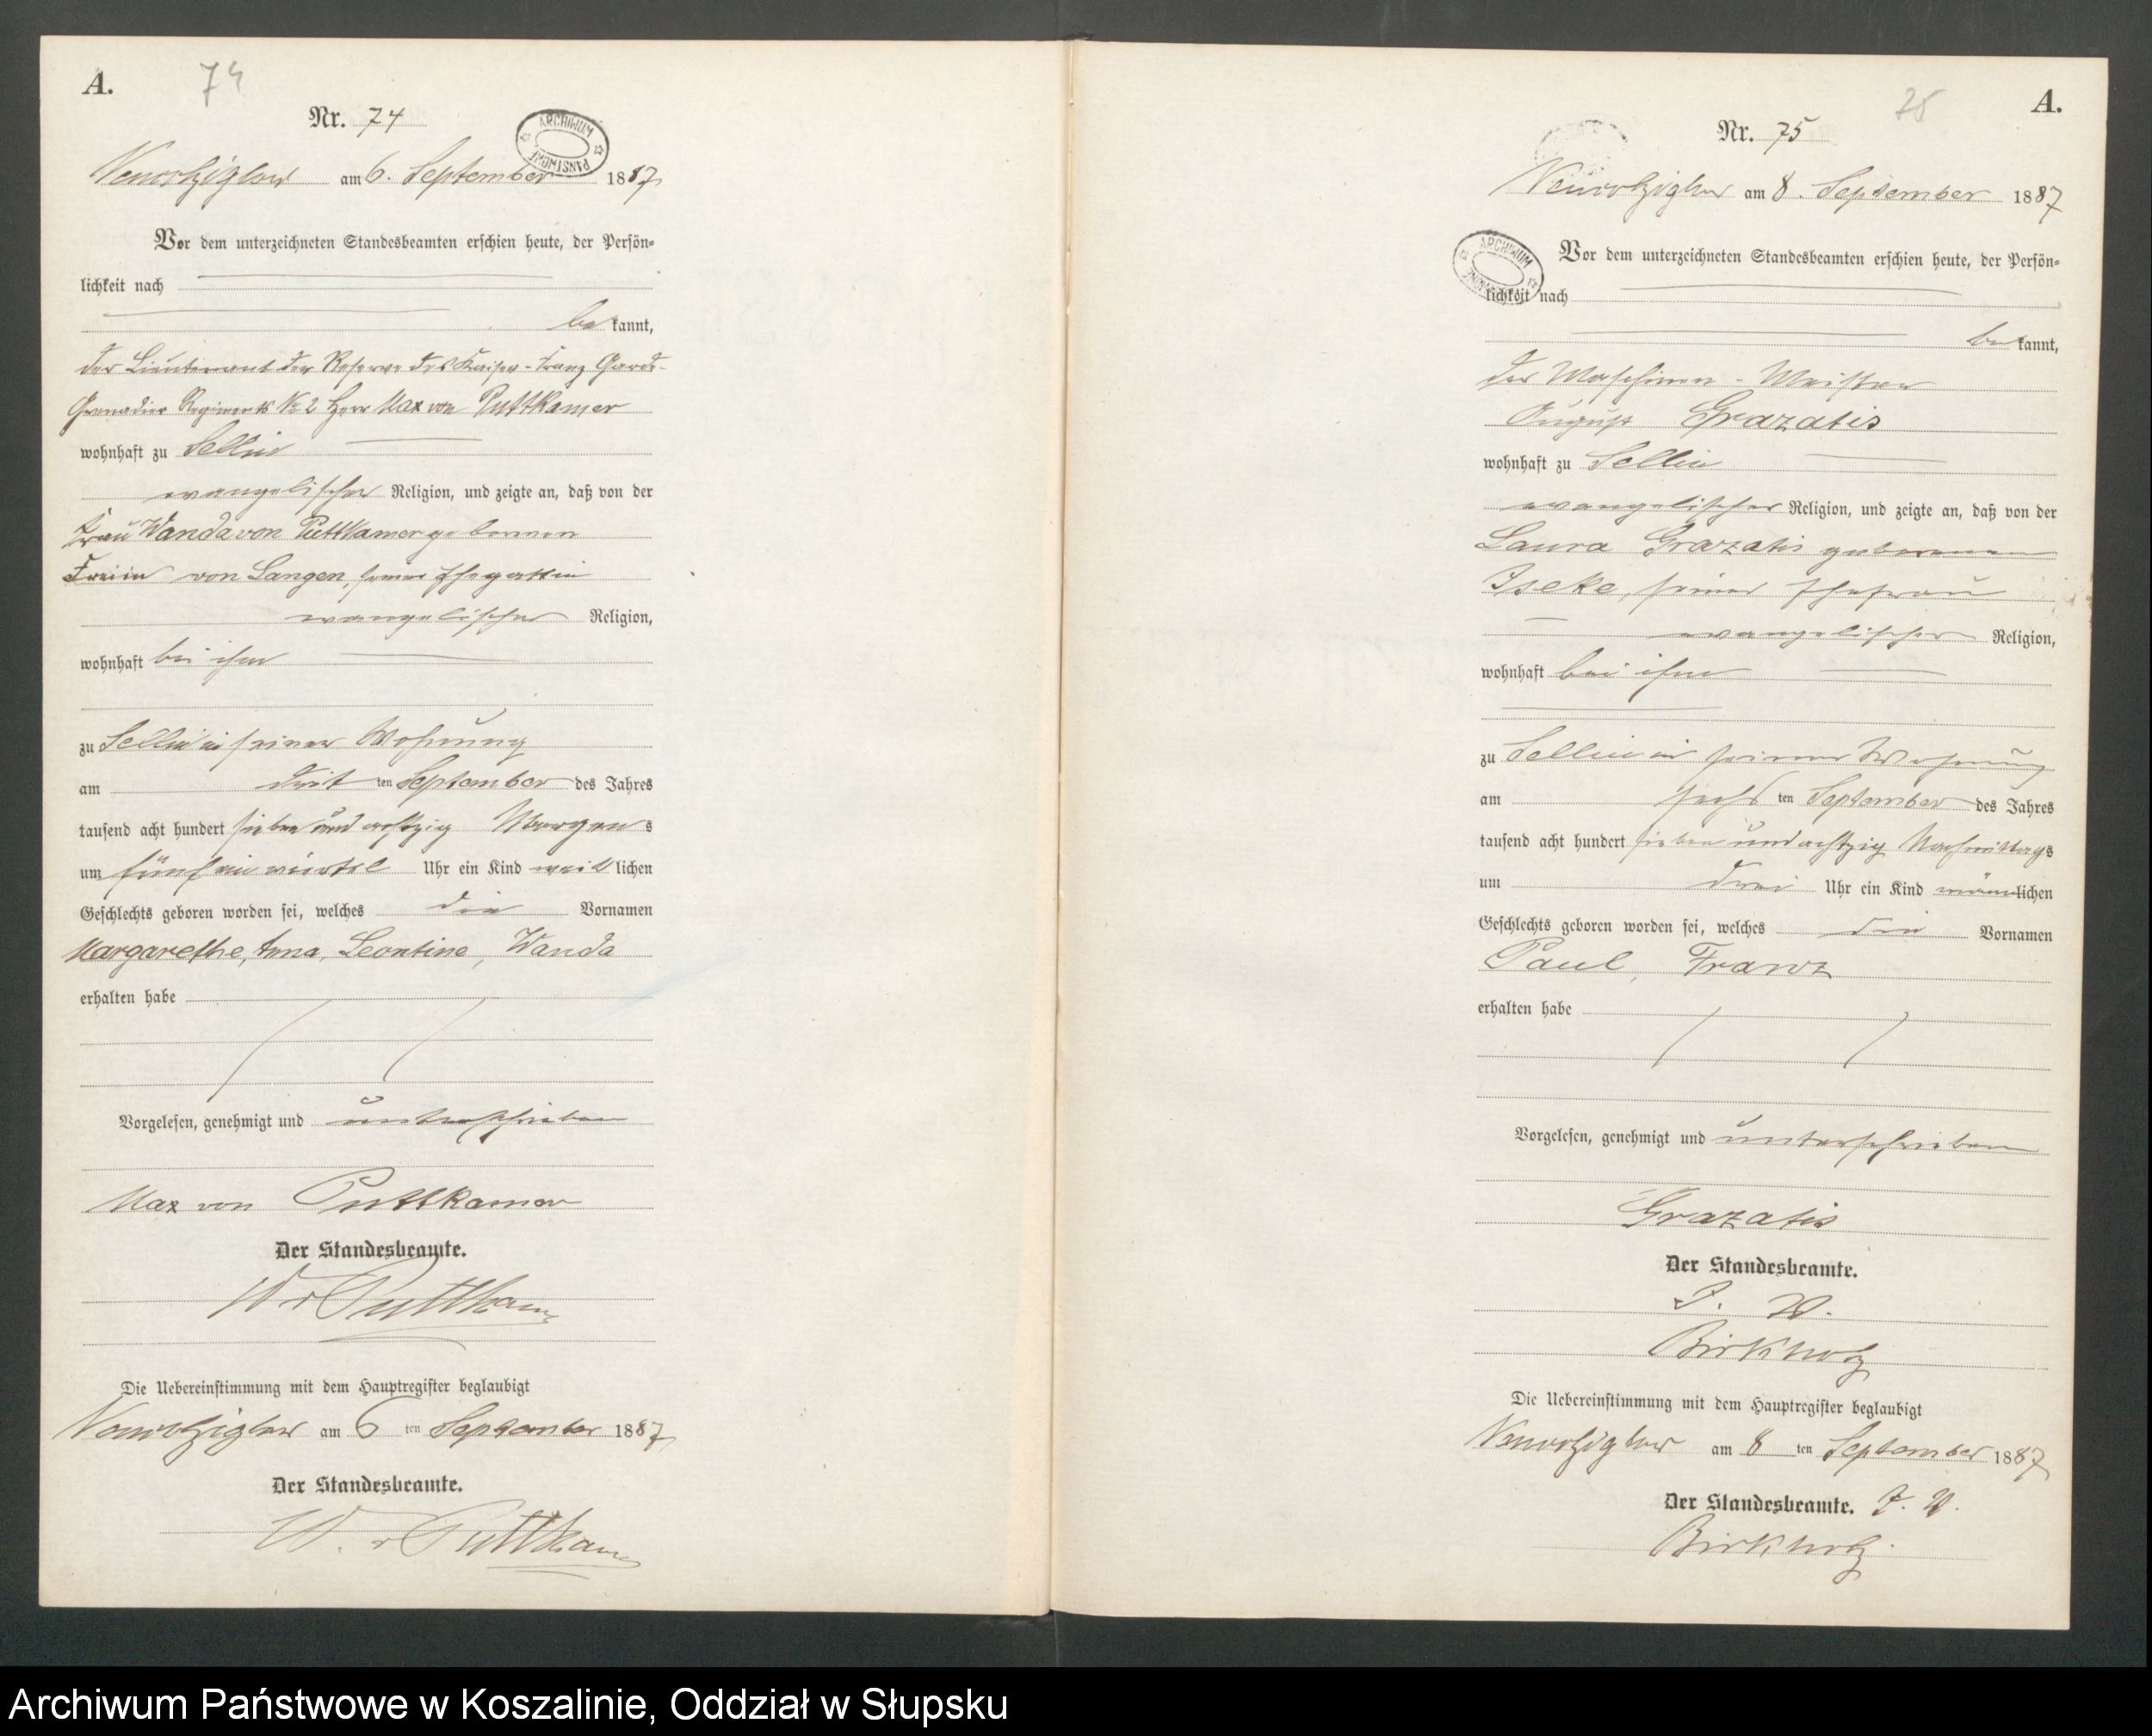 A.
74
Nr. 74
ARCHIWUM PAŃSTWOWE
am 6. September 1887
Vor dem unterzeichneten Standesbeamten erschien heute, der Persön-
lichkeit nach
be kannt,
der Lieutenant der Reserve des Kaiser-Franz Garde-
Grenadier Regiments No 2 Herr Max von Puttkamer
wohnhaft zu Sellin
evangelischer Religion, und zeigte an, daß von der
Frau Wanda von Puttkamer geborenen
Freiin von Langen, seiner Ehegattin
evangelischer Religion,
wohnhaft bei ihm
zu Sellin in seiner Wohnung
am dritten September des Jahres
tausend acht hundert sieben und achtzig Morgens
um fünf ein viertel Uhr ein Kind weiblichen
Geschlechts geboren worden sei, welches die Vornamen
Margarethe, Anna, Leontine, Wanda
erhalten habe
Vorgelesen, genehmigt und unterschrieben
Max von Puttkamer
Der Standesbeamte.
W v Puttkamer
Die Uebereinstimmung mit dem Hauptregister beglaubigt
am 6 ten September 1887
Der Standesbeamte.
W. v Puttkamer
75
A.
Nr. 75
am 8. September 1887
ARCHIWUM PAŃSTWOWE
Vor dem unterzeichneten Standesbeamten erschien heute, der Persön-
lichkeit nach
be kannt,
der Maschinen-Meister
August Grazatis
wohnhaft zu Sellin
evangelischer Religion, und zeigte an, daß von der
Laura Grazatis geborenen
Iseke, seiner Ehefrau
evangelischer Religion,
wohnhaft bei ihm
zu Sellin in seiner Wohnung
am sechs ten September des Jahres
tausend acht hundert sieben und achtzig Nachmittags
um drei Uhr ein Kind männlichen
Geschlechts geboren worden sei, welches die Vornamen
Paul, Franz
erhalten habe
Vorgelesen, genehmigt und unterschrieben
Grazatis
Der Standesbeamte.
I. V.
Birkholz
Die Uebereinstimmung mit dem Hauptregister beglaubigt
am 8 ten September 1887
Der Standesbeamte. I. V.
Birkholz
Archiwum Państwowe w Koszalinie, Oddział w Słupsku